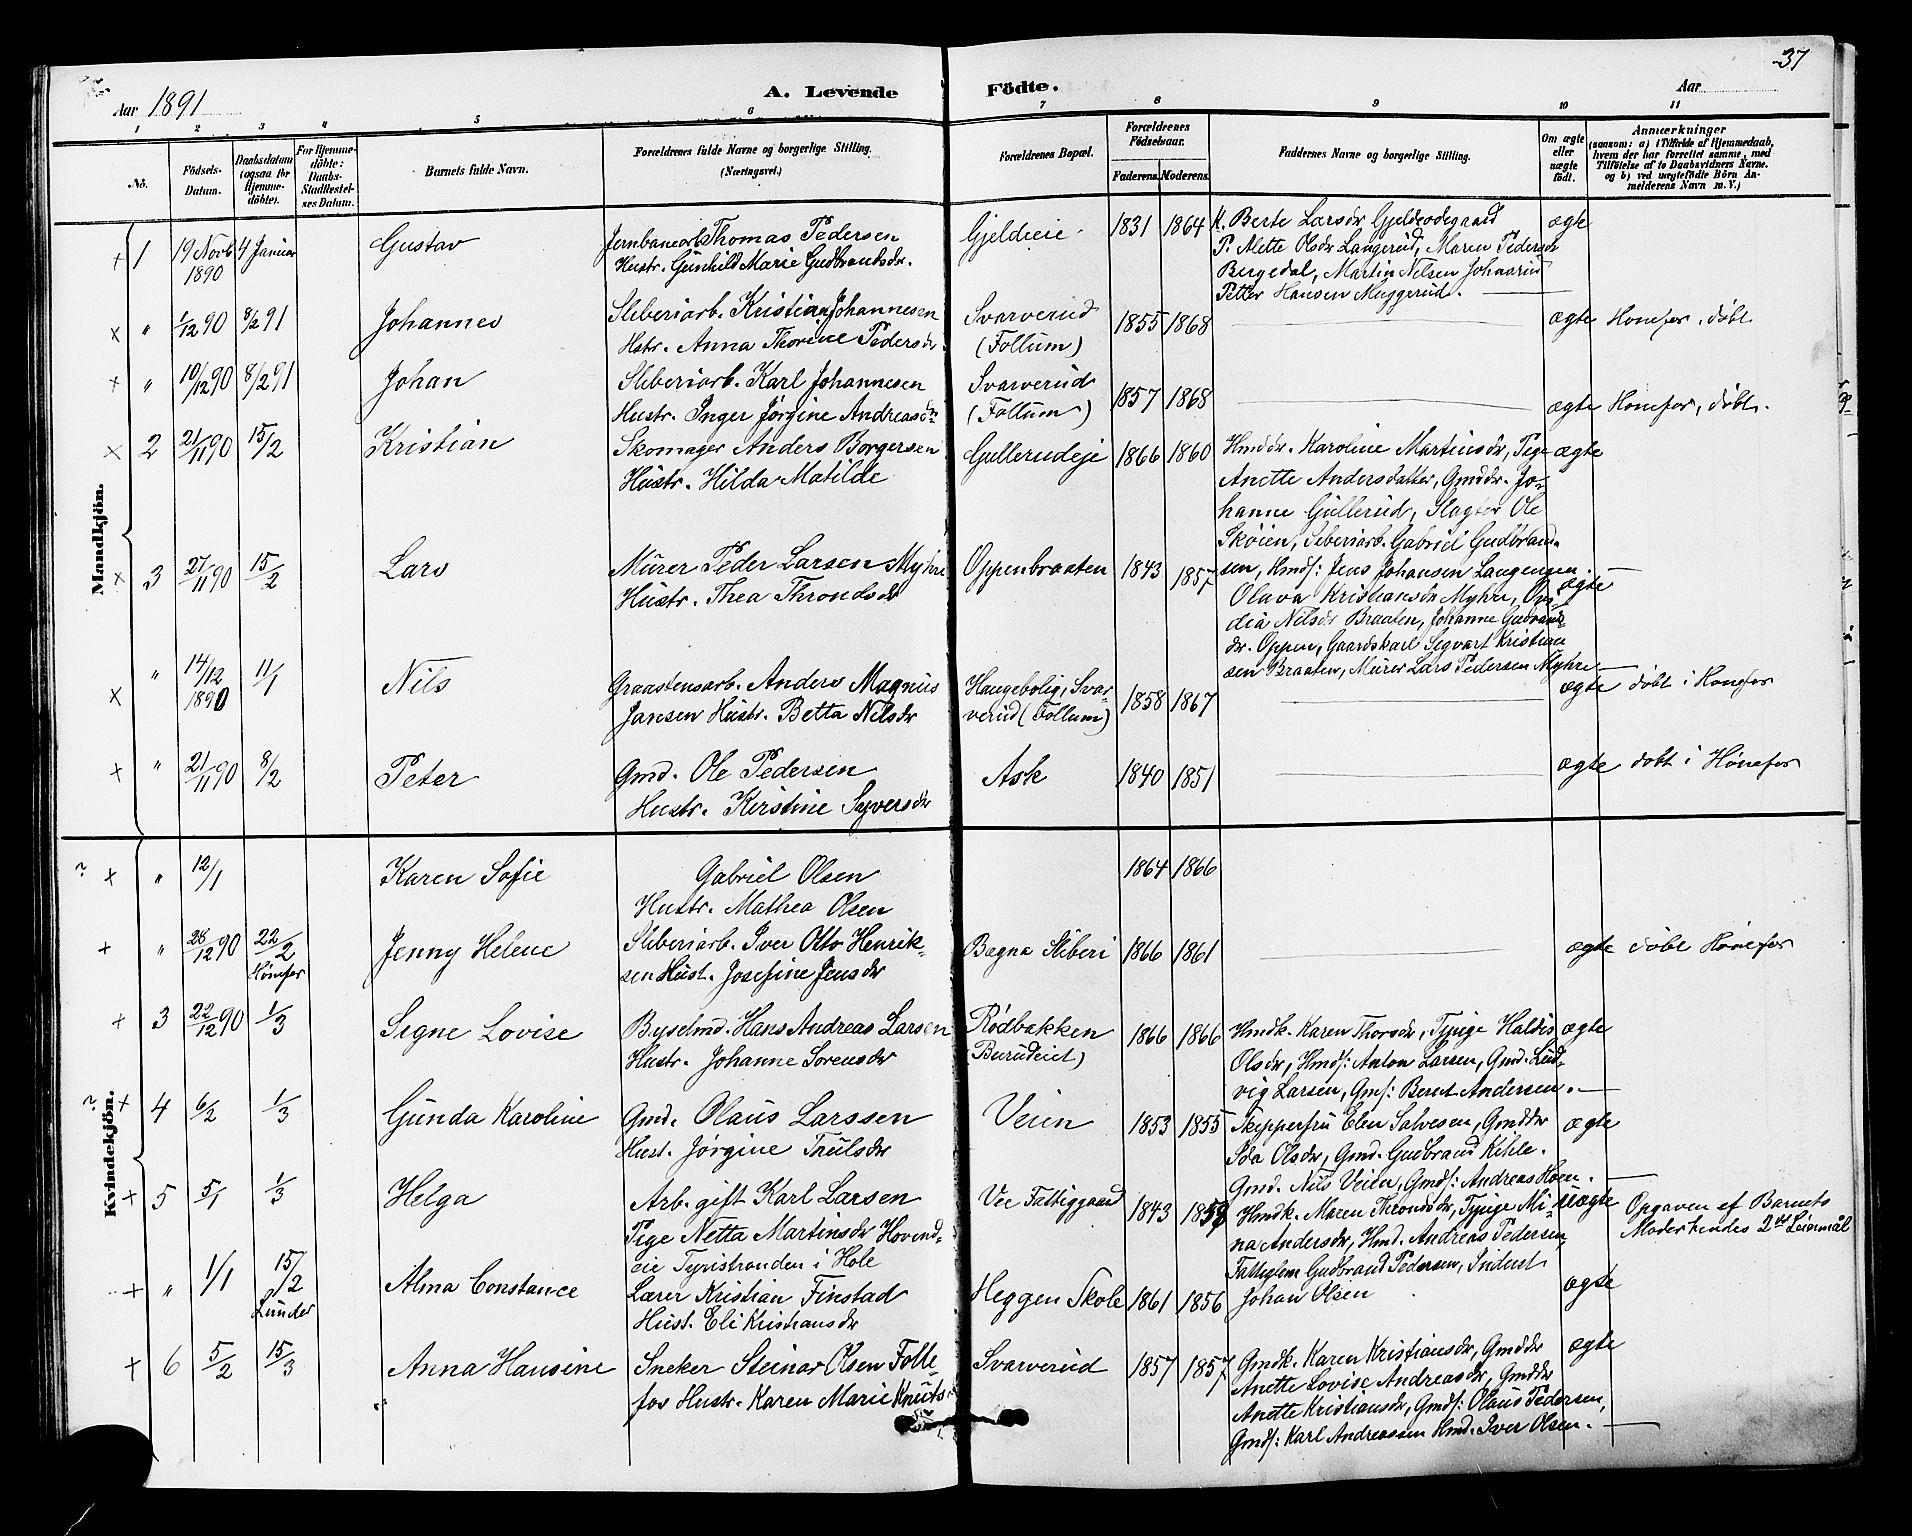 37
Aar 1891
A. Levende Födte.
Aar
1 2 3 4 5 6 7 8 9 10 11
No.
Födsels-Datum.
Daabsdatum (ogsaa for Hjemme-döbte).
For Hjemme-döbte: Daabs-Stadfæstel-ses Datum.
Barnets fulde Navn.
Forældrenes fulde Navne og borgerlige Stilling.
(Næringsvei.)
Forældrenes Bopæl.
Forældrenes Födselsaar.
Faderens. Moderens.
Faddernes Navne og borgerlige Stilling.
Om ægte eller uægte født.
Anmærkninger
(saasom: a) i Tilfælde af Hjemmedaab,
hvem der har forrettet samme, med
Tilföielse af to Daabsvidners Navne.
og b) ved uægtefödte Börn An-
melderens Navn m. V.)
Mandkjön.
× 1 19 Novb 1890 4 Januar Gustav
Jernbanearb Thomas Pedersen
Hustr. Gunhild Marie Gudbrandsdr.
Gjeldeie 1831 1864
K. Berte Larsdr Gjeldeodegaard
P. Alette Olsdr Langerud, Maren Pedersdr
Bergedal, Martin Nilsen Johnsrud
Petter Hansen Muggerud.
ægte
× " 1/12 90 8/2 91 Johannes
Sliberiarb. Kristian Johannesen
Hstr. Anna Thorine Pedersdr
Svarverud
(Follum)
1855 1868 ægte Honefos, døbt
× " 10/12 90 8/2 91 Johan
Sliberiarb. Karl Johannesen
Hustr. Inger Jørgine Andreasdr
Svarverud
(Follum)
1857 1868 ægte Honefos, døbt.
× 2 21/11 90 15/2 Kristian
Skomager Anders Borgersen
Hustr. Hilda Matilde
Gullerudeje 1866 1860
Hmddr. Karoline Martinsdr, Pige
Anette Andersdatter, Gmddr. Jo-
hanne Gullerud, Slagter Ole
Skøien, Sliberiarb. Gabriel Gudbrand-
sen, Hmds: Jens Johansen Langengen.
ægte
× 3 27/11 90 15/2 Lars
Murer Peder Larsen Myhre
Hustr. Thea Throndsdr
Oppenbraaten 1843 1857
Olava Kristiansdr Myhre,
dia Nilsdr Braaten, Johanne Gudbrands-
dr. Oppen, Gaardskarl Segvart Kristian
sen Braaten, Murer Lars Pedersen Myhre
ægte
× " 14/12 1890 11/1 Nils
Graastensarb. Anders Magnus
Jansen Hustr. Betta Nilsdr
Haugebolig, Svar-
verud (Follum)
1858 1867 ægte døbt i Honefos
× " 21/11 90 8/2 Peter
Gmd. Ole Pedersen
Hustr. Kirstine Syversdr
Ask 1840 1851 ægte døbt i Hønefos
Kvindekjön.
? × " 12/1 Karen Sofie
Gabriel Olsen
Hustr. Mathea Olsen
1864 1866
× " 28/12 90 22/2 Hønefos Jenny Helene
Sliberiarb. Iver Otto Henrik-
sen Hust. Josefine Jensdr
Bægna Sliberi 1866 1861 ægte døbt Hønefos
× 3 22/12 90 1/3 Signe Lovise
Byselmd. Hans Andreas Larsen
Hustr. Johanne Sorensdr
Rødbakken
(Burudeiet)
1866 1866
Hmdk. Karen Thorsdr, Tjnige Haldis
Olsdr, Hmds: Anton Larsen, Gmd. Lud-
vig Larsen, Gms: Bernt Andersen.
ægte
? × 4 6/2 1/3 Gunda Karoline
Gmd. Olaus Larssen
Hust. Jørgine Trulsdr
Veien 1853 1855
Skipperfru Elen Salvesen, Gmddr
Ida Olsdr, Gmd. Gudbrand Kihle.
Gmd. Nils Veien, Gmds: Andreas Hoen.
ægte
× 5 5/1 1/3 Helga
Arb. gift Karl Larsen
Pige Netta Martinsdr Hovend-
eie Tyristranden i Hole
Ves Fattiggaard 1843 1859
Hmdk. Maren Throndsdr, Tjnige Mi-
na Andersdr, Hmd. Andreas Pedersen,
Fattiglem Gudbrand Pedersen, Inderst
Johan Olsen
uægte
Opgaven af Barnets
Moder hendes 2det Leiermål
× " 1/1 15/2 Lunder Alma Constance
Lærer Kristian Finstad
Hust. Eli Kristiansdr
Heggen Skole 1861 1856 ægte
× 6 5/2 15/3 Anna Hansine
Sneker Steinar Olsen Folle-
fos Hustr. Karen Marie Knuts-
dr.
Svarverud 1857 1857
Gmdk. Karen Kristiansdr, Gmddr
Anette Lovise Andreasdr, Gmddr
Anette Kristiansdr, Gmds: Olaus Pedersen,
Gmds: Karl Andreassen Hmd. Iver Olsen.
ægte